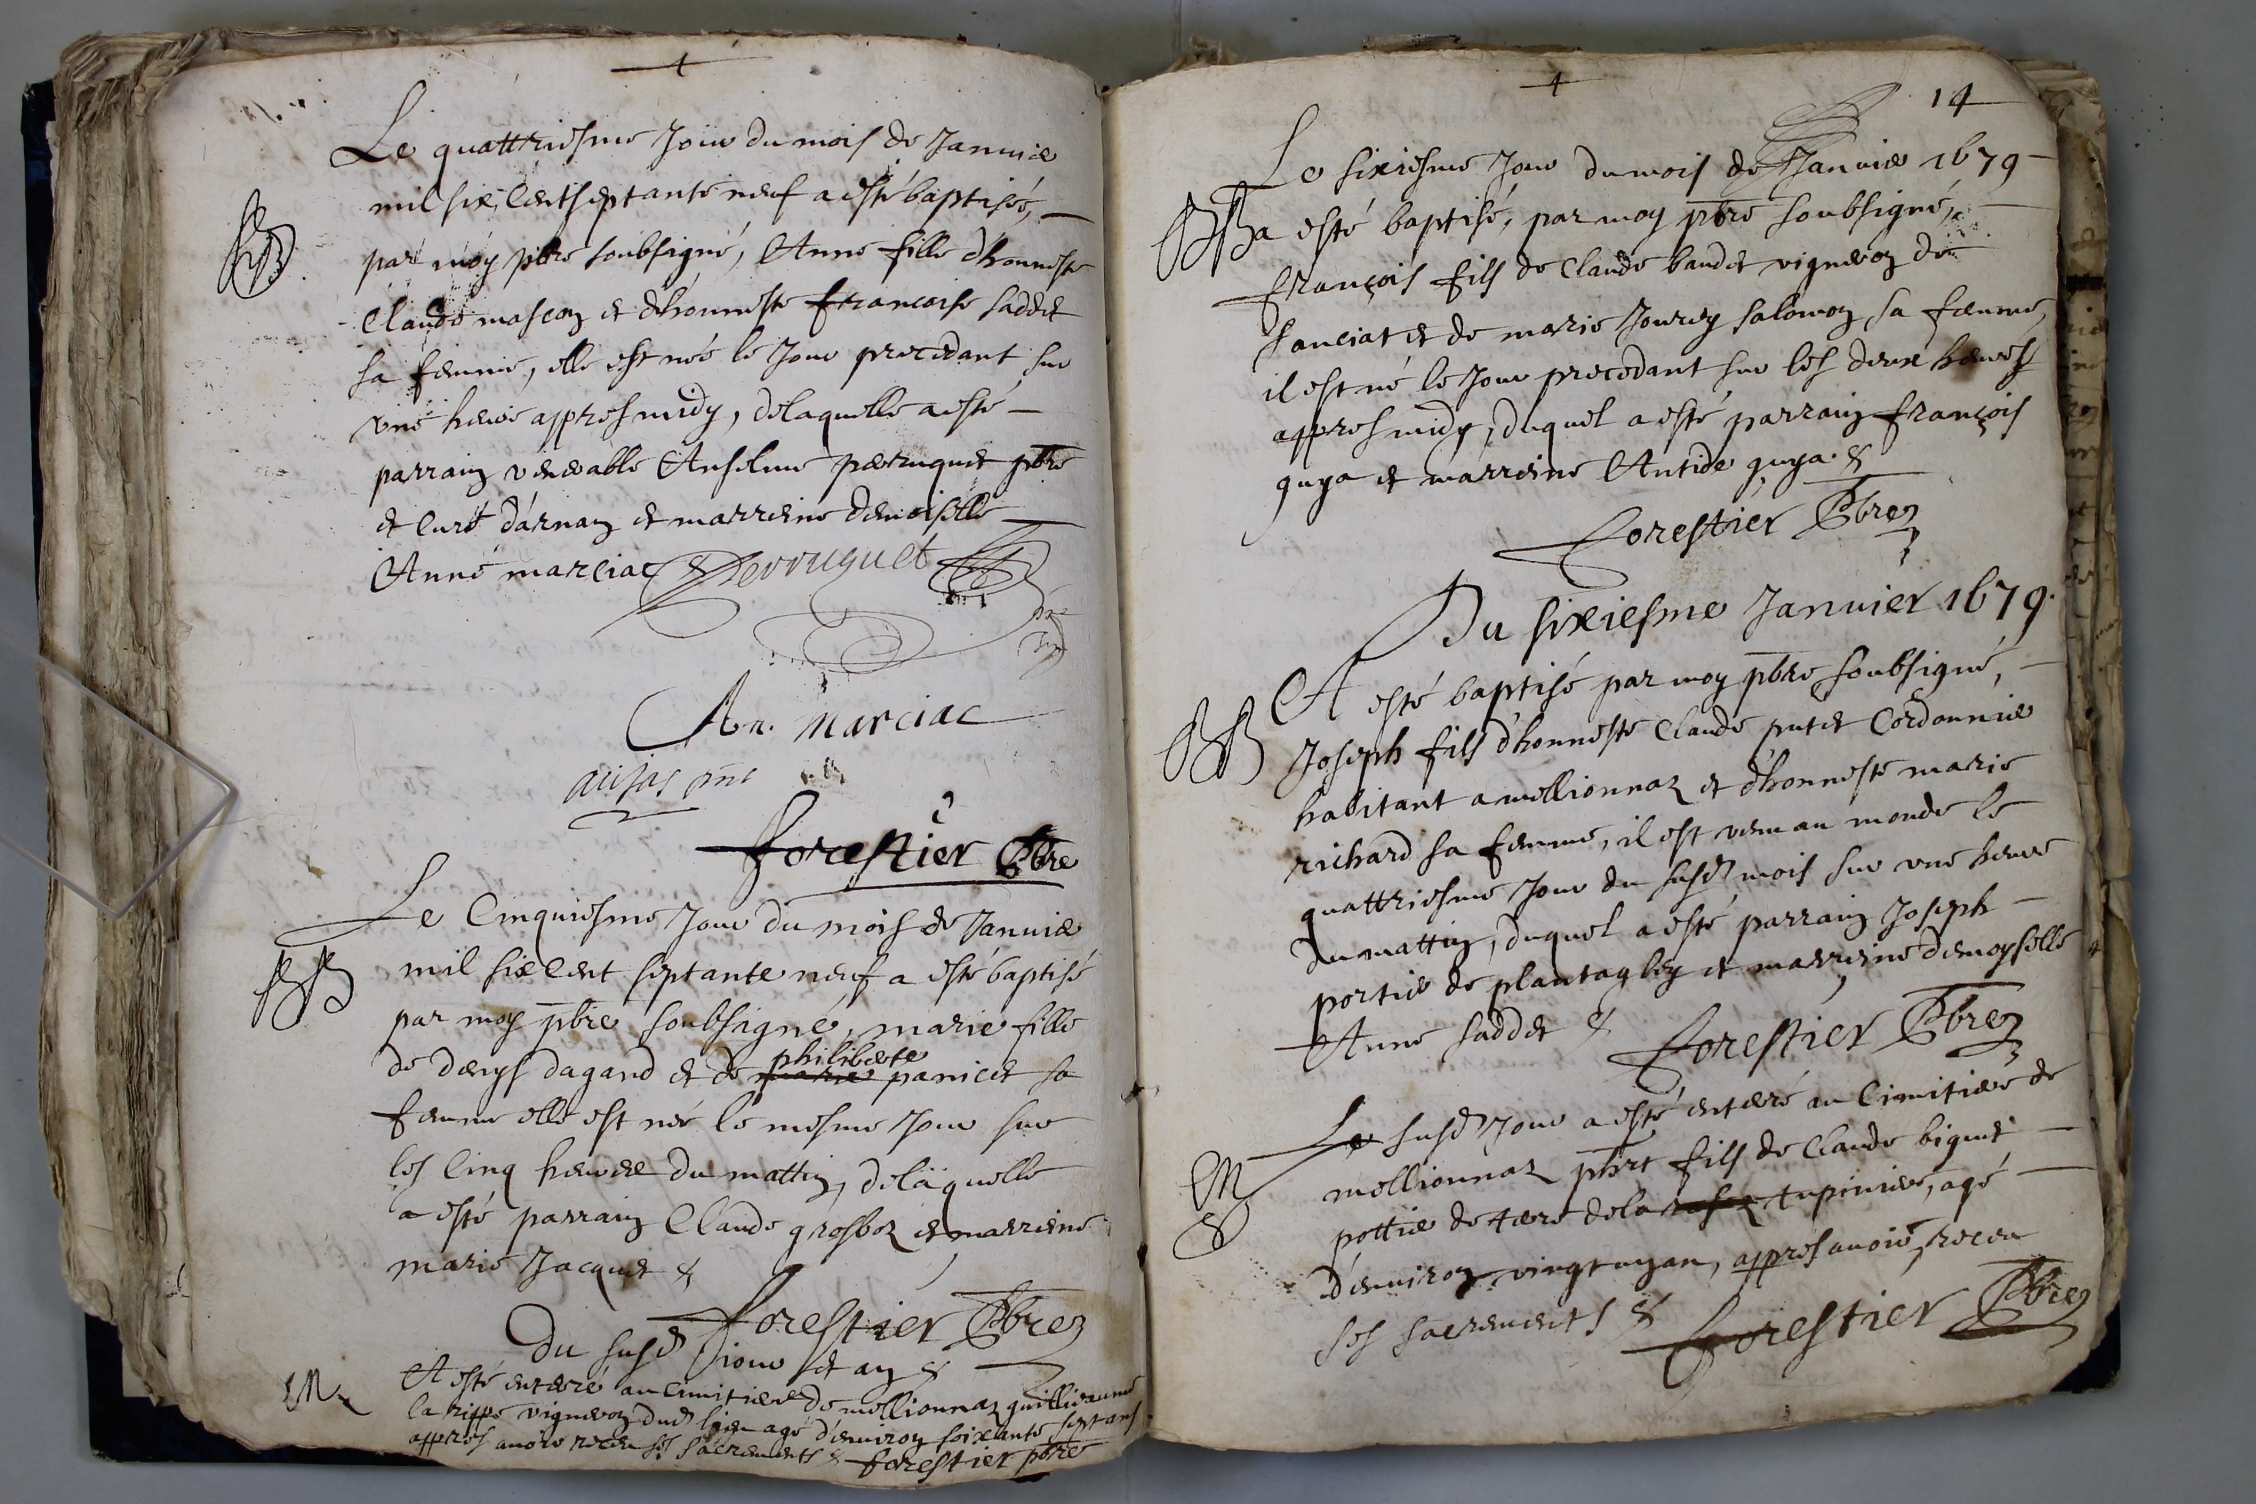 Le quattriesme Jour du mois de Januier
mil six Cent septante neuf a esté baptisée,
par moy pbre soubsigné, Anne fille d'honneste
Claude mascon et d'honneste francoise saddet
sa femme, elle est née le Jour precedant sur
vne heure appres midy, delaquelle a esté
parrain venerable Anselme perruquet pbre
et Curé d'arnay et marreine demoiselle
Anne marciac & Perruquet
An. Marciac
forestier Pbre
Le Cinquiesme Jour du mois de Januier
mil six Cent septante neuf a esté baptisé
par moy pbre soubsigné, marie fille
de denys dagand et de philiberte panicet sa
femme elle est née le mesme Jour sur
les Cinq heures du mattin, delaquelle
a esté parrain Claude grosboz et marreine
marie Jacquet &
forestier Pbre
Du susd Jour et an &
A esté enterré au Cimitiere de mellionnaz guillieaume
la rippe vigneron dud lieu agé d'enuiron soixante sept ans
appres auoir receu ses sacrements & forestier pbre
14
Le sixiesme Jour du mois de Januier 1679
a esté baptisé, par moy pbre soubsigné,
françois fils de Claude baudet vigneron de
sanciat et de marie Jourcy salomon sa femme,
il est né le Jour precedant sur les deux heures
appres midy, duquel a esté parrain françois
guya et marreine Antide guya &
forestier Pbre
Du sixiesme Januier 1679.
A esté baptisé par moy pbre soubsigné,
Joseph fils d'honneste Claude putet Cordonnier
habitant a mellionnaz et d'honneste marie
richard sa femme, il est venu au monde le
quattriesme Jour du susd mois sur vne heure
du mattin, duquel a esté parrain Joseph
portier de plantagley et marreine demoyselle
Anne saddet &
forestier Pbre
Le susd Jour a esté enterré au Cimitiere de
mellionnaz phirt fils de Claude biguet
pottier de terre dela tupiniere, agé
d'enuiron vingt un an, appres auoir receu
ses sacrements &
forestier Pbre